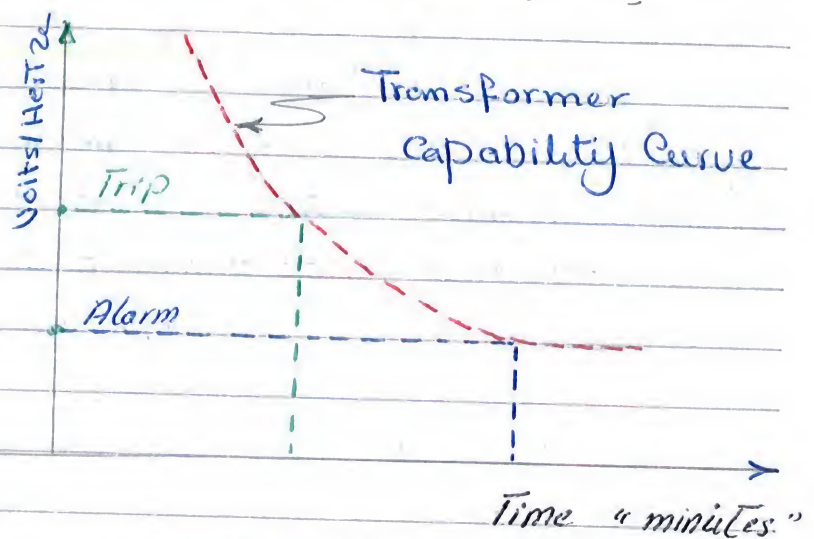 Volts/Hertze
Transformer
Capability Curve
Trip
Alarm
Time "minutes"